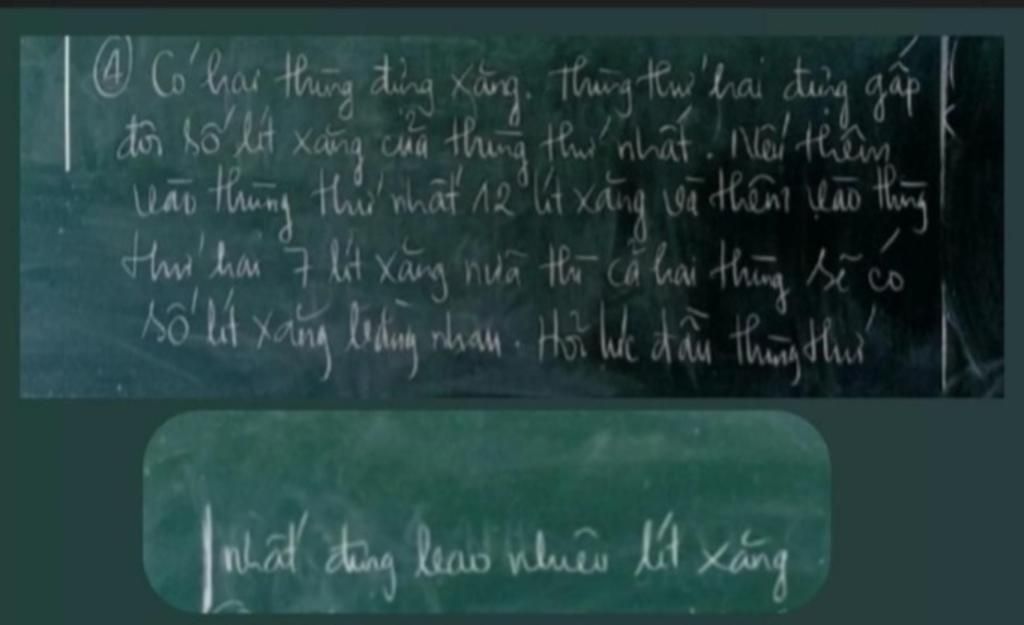 ④ Có hai thùng đựng xăng. Thùng thứ hai đựng gấp
đôi số lít xăng của thùng thứ nhất. Nếu thêm
vào thùng thứ nhất 12 lít xăng và thêm vào thùng
thứ hai 7 lít xăng nữa thì cả hai thùng sẽ có
số lít xăng bằng nhau. Hỏi lúc đầu thùng thứ
nhất đựng bao nhiêu lít xăng